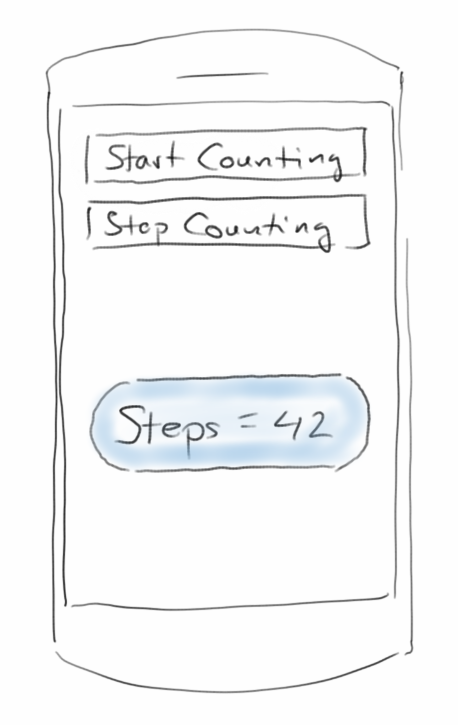 Start Counting
Stop Counting
Steps = 42